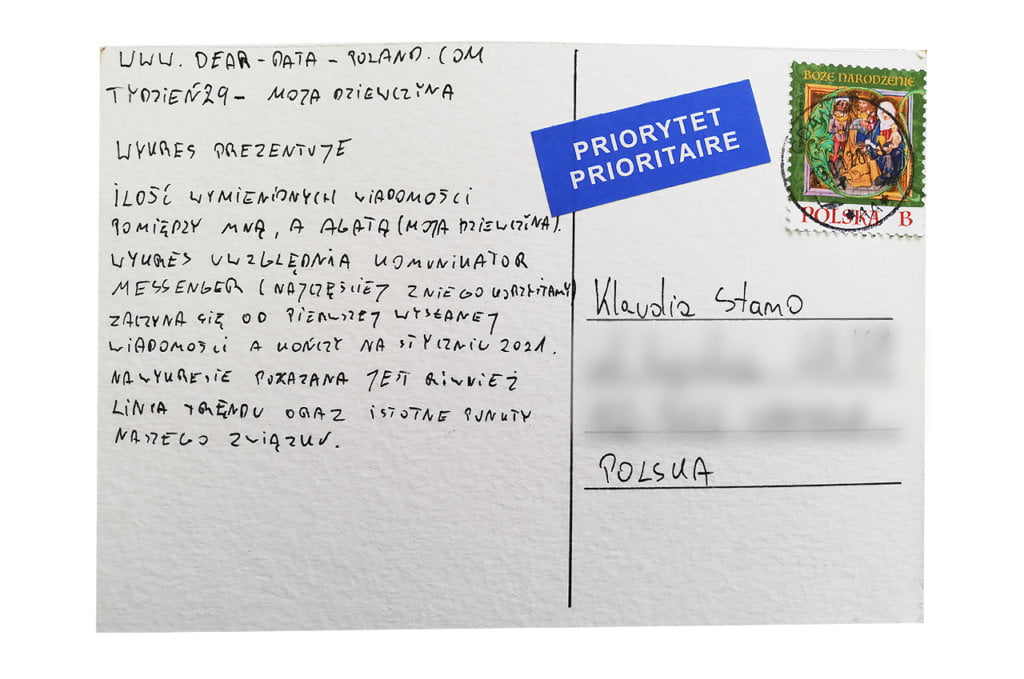 WWW. DEAR-DATA-POLAND.COM
TYDZIEŃ 29 - MOJA DZIEWCZYNA
WYKRES PREZENTUJE
ILOŚĆ WYMIENIONYCH WIADOMOŚCI
POMIĘDZY MNĄ, A AGATĄ (MOJA DZIEWCZYNA).
WYKRES UWZGLĘDNIA KOMUNIKATOR
MESSENGER (NAJCZĘŚCIEJ Z NIEGO KORZYSTAMY)
ZACZYNA SIĘ OD PIERWSZEJ WYSŁANEJ
WIADOMOŚCI A KOŃCZY NA STYCZNIU 2021.
NA WYKRESIE POKAZANA JEST RÓWNIEŻ
LINIA TRENDU ORAZ ISTOTNE PUNKTY
NASZEGO ZWIĄZKU.
PRIORYTET
PRIORITAIRE
BOŻE NARODZENIE
POLSKA B
Klaudia Stamo
POLSKA